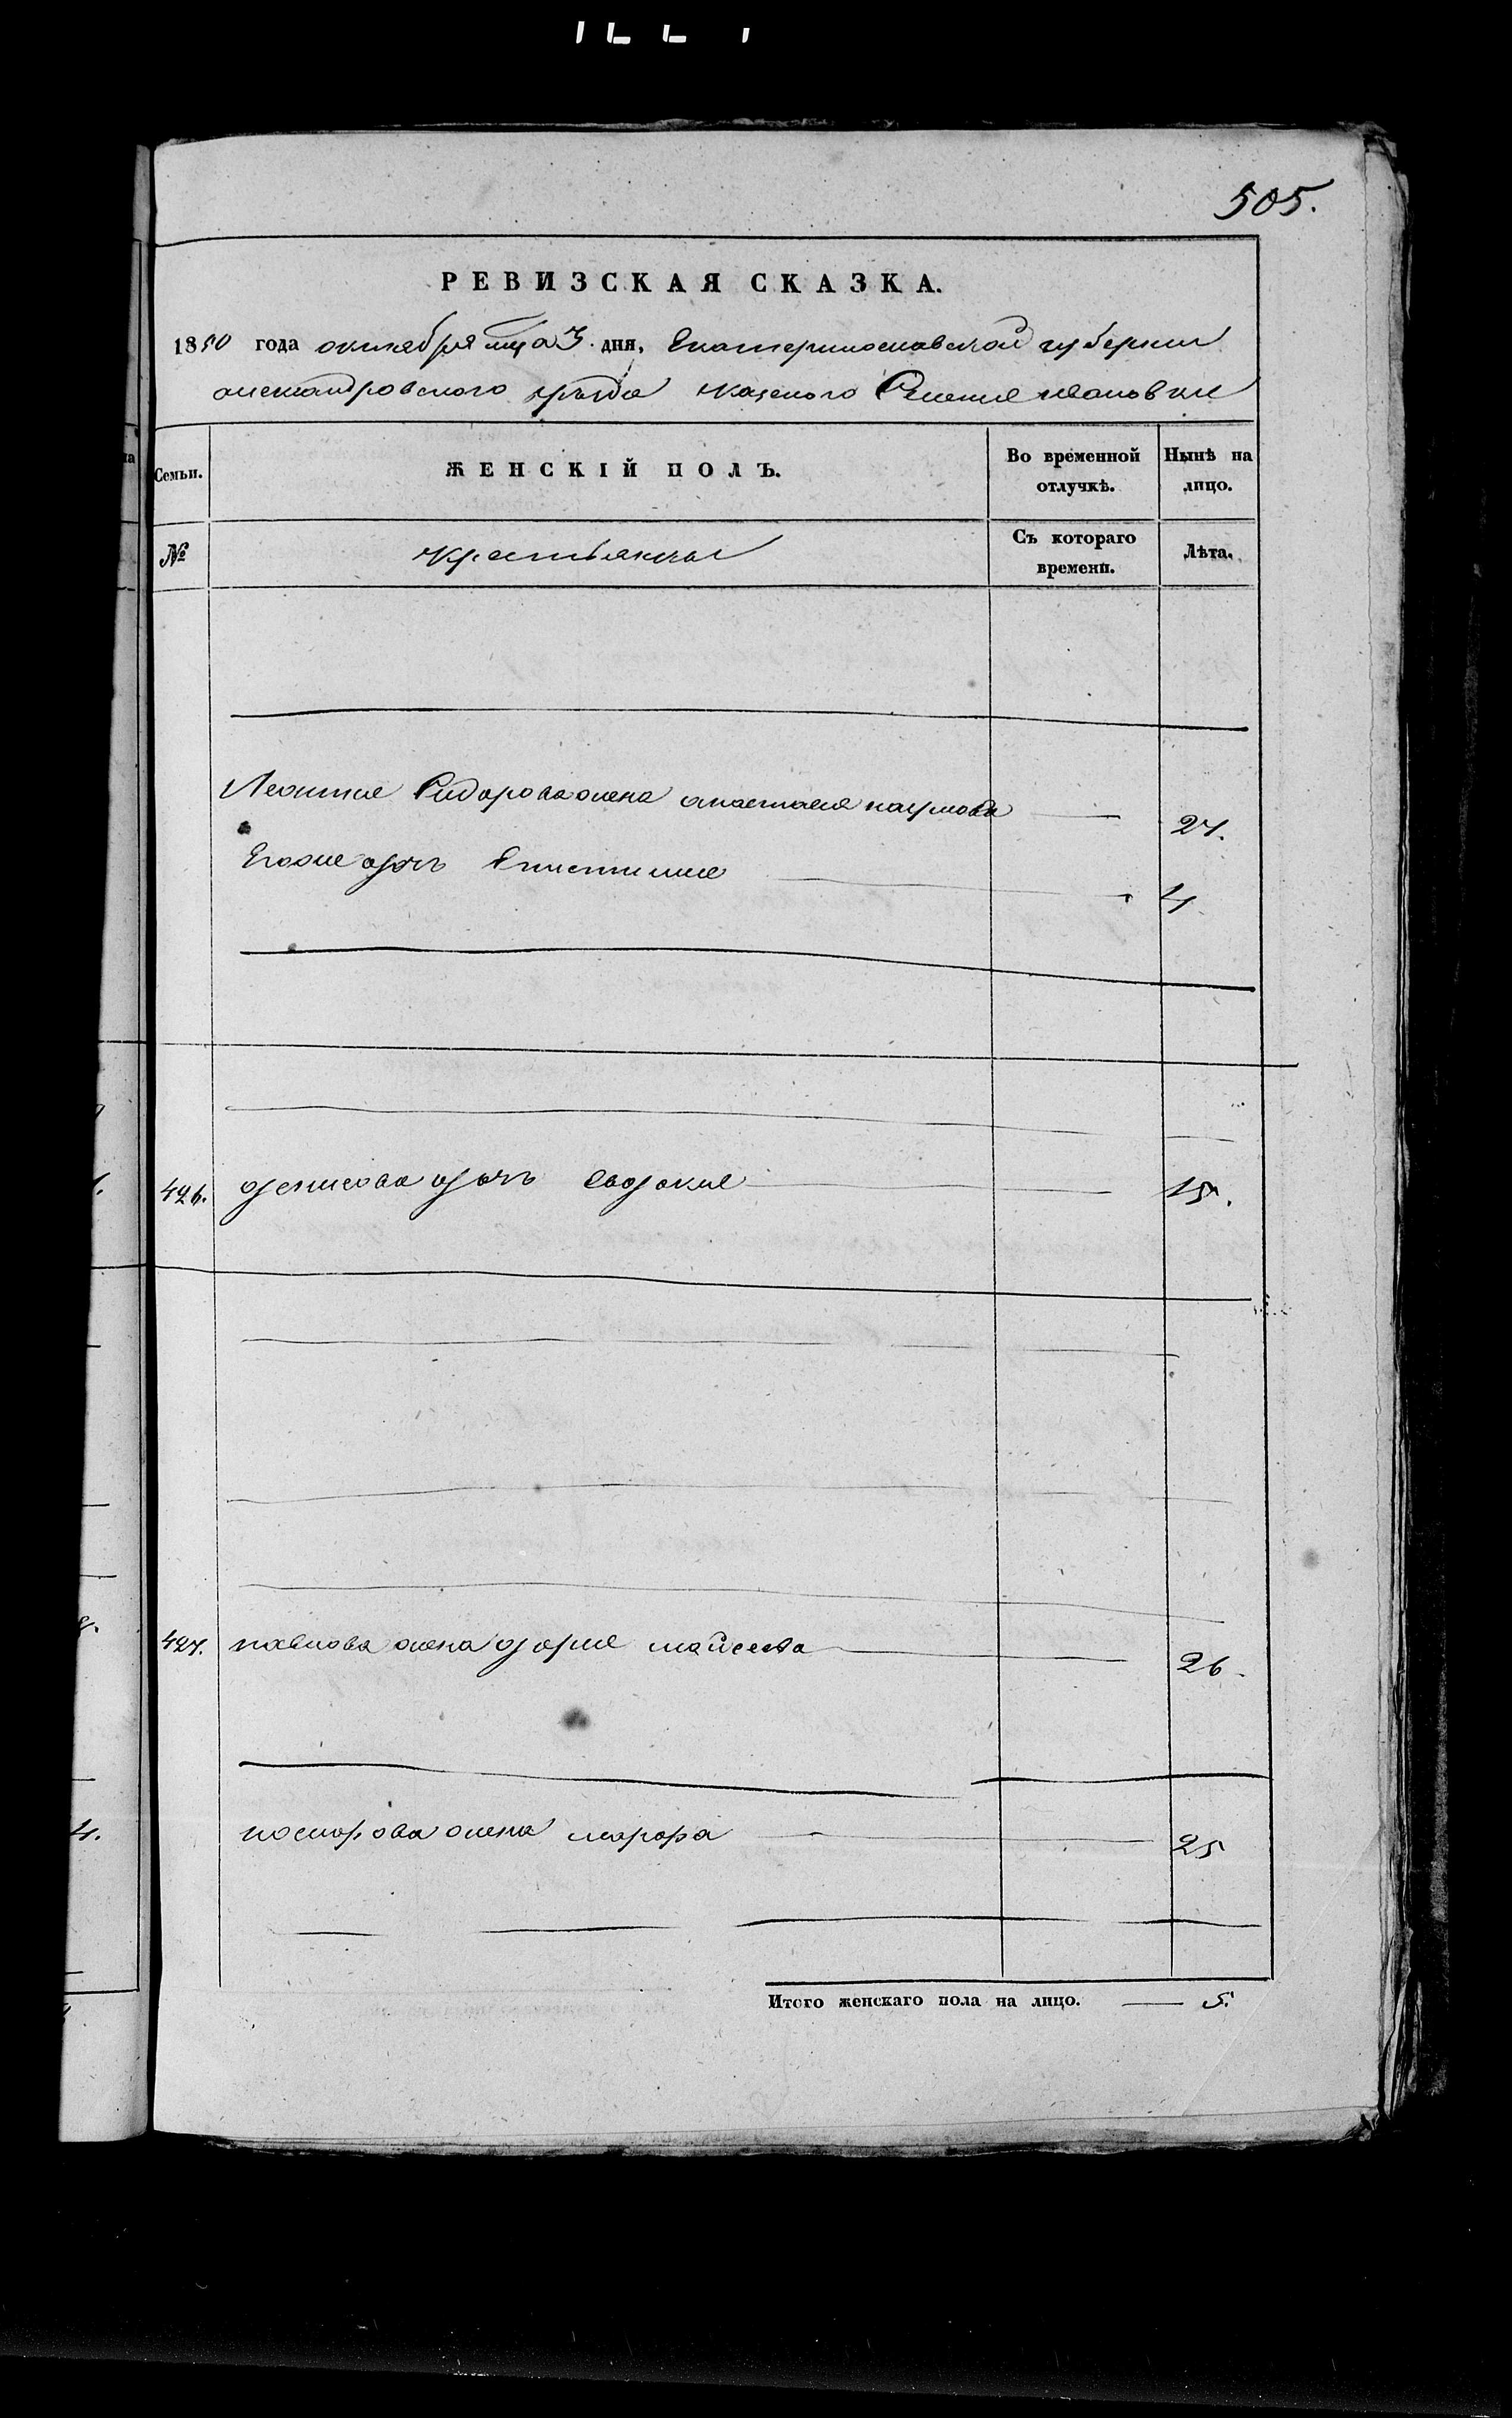 505.
РЕВИЗСКАЯ СКАЗКА.
1850 года октября мца 3. дня, Екатеринославской губернии
александровского уезда казеного Селения ивановки
Семьи.
ЖЕНСКІЙ ПОЛЪ.
Во временной отлучкѣ.
Нынѣ на лицо.
№
Крестьянскы
Съ котораго времени.
Лѣта.
Леонтия Сидорова жена анастасия наумова 27.
Егожа дочь Епистимия 4.
426. денисова дочь евдокия 15.
427. павлова жена дария майсеева 26.
жена марфа 25
Итого женскаго пола на лицо. 5.